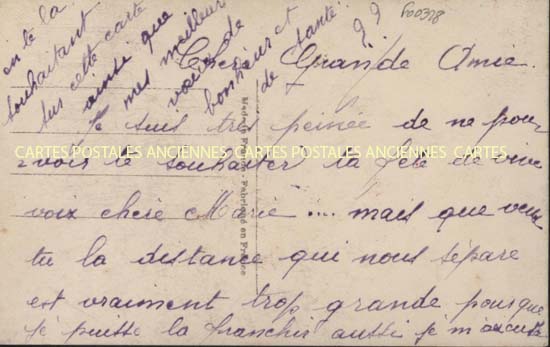 Chère Grande Amie.
Je suis très peinée de ne pou-
-voir te souhaiter ta fête de vive
voix chère Marie .... mais que veux
tu la distance qui nous sépare
est vraiment trop grande pour que
je puisse la franchir aussi je m'excuse
en te la
souhaitant
sur cette carte
ainsi que
mes meilleurs
voeux de
bonheur et
de santé.
600378
CARTES POSTALES ANCIENNES CARTES POSTALES ANCIENNES CARTES
Made in France - Fabriqué en France